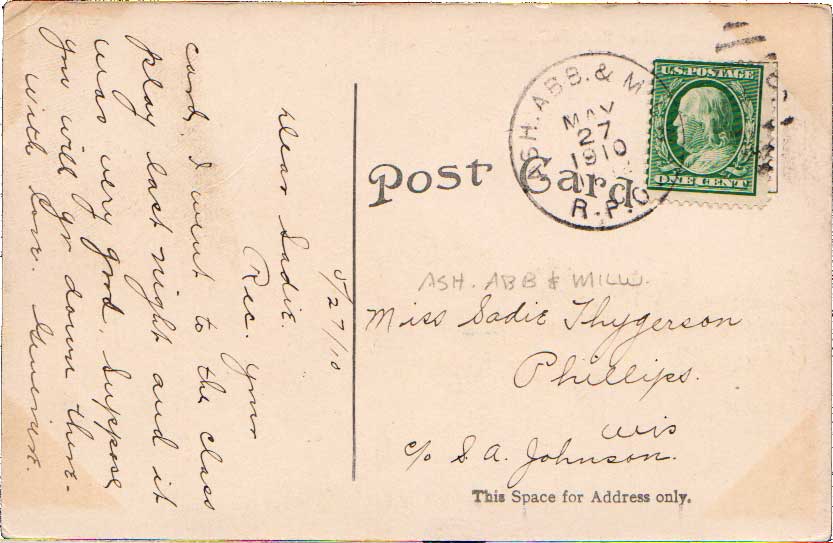 5/27/10
Dear Sadie.
Rec. your
card. I went to the class
play last night and it
was very good. Suppose
you will go down there.
with love. Genevieve.
Post Card
ASH. ABB. & MIL
MAY
27
1910
R.P.O.
U.S. POSTAGE
ONE CENT
ASH. ABB & MILW.
Miss Sadie Thygerson
Phillips.
Wis
c/o S. A. Johnson.
This Space for Address only.